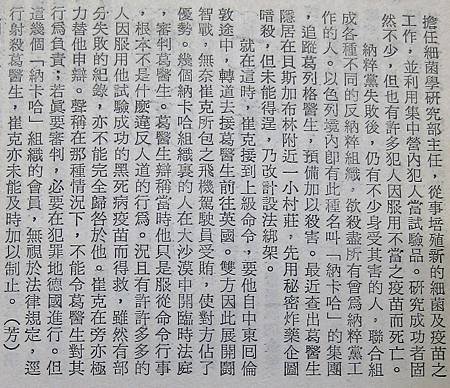 擔任細菌學研究部主任，從事培殖新的細菌及疫苗之
工作，並利用集中營內犯人當試驗品。研究成功者固
然不少，但也有許多犯人因服用不當之疫苗而死亡。
納粹黨失敗後，仍有不少身受其害的人，聯合組
成各種不同的反納粹組織，欲殺盡所有曾爲納粹黨工
作的人。以色列境內卽有此種名叫「納卡哈」的集團
，追蹤葛列格醫生，預備加以殺害。最近查出葛醫生
隱居在貝斯加布林附近一小村莊，先用秘密炸藥企圖
暗殺，但未能得逞，乃改計設法綁架。
就在這時，崔克接到上級命令，要他自中東囘倫
敦途中，轉道去接葛醫生前往英國。雙方因此展開鬪
智戰，無奈崔克所包之飛機駕駛員受賄，使對方佔了
優勢。幾個納卡哈組織裏的人在大沙漠中開臨時法庭
，審判葛醫生。葛醫生辯稱當時他只是服從命令行事
，根本不是什麽違反人道的行為。況且有許許多多的
人因服用他試驗成功的黑死病疫苗而得救，雖然有部
分失敗的紀錄，亦不能完全歸咎於他。崔克在旁亦極
力替他申辯。聲稱在那種情況下，不能令葛醫生對其
行為負責；若眞要審判，必要在犯罪地德國進行。但
這幾個「納卡哈」組織的會員，無視於法律規定，逕
行射殺葛醫生，崔克亦未能及時加以制止。（芳）